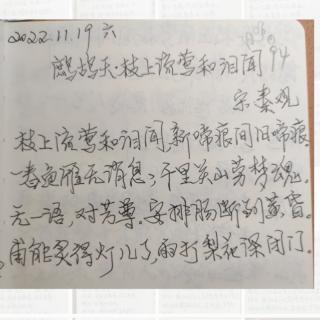 2022.11.19 六
94
鹧鸪天·枝上流莺和泪闻
宋 秦观
枝上流莺和泪闻,新啼痕间旧啼痕.
一春鱼雁无消息,千里关山劳梦魂.
无一语,对芳尊.安排肠断到黄昏.
甫能炙得灯儿了,雨打梨花深闭门.